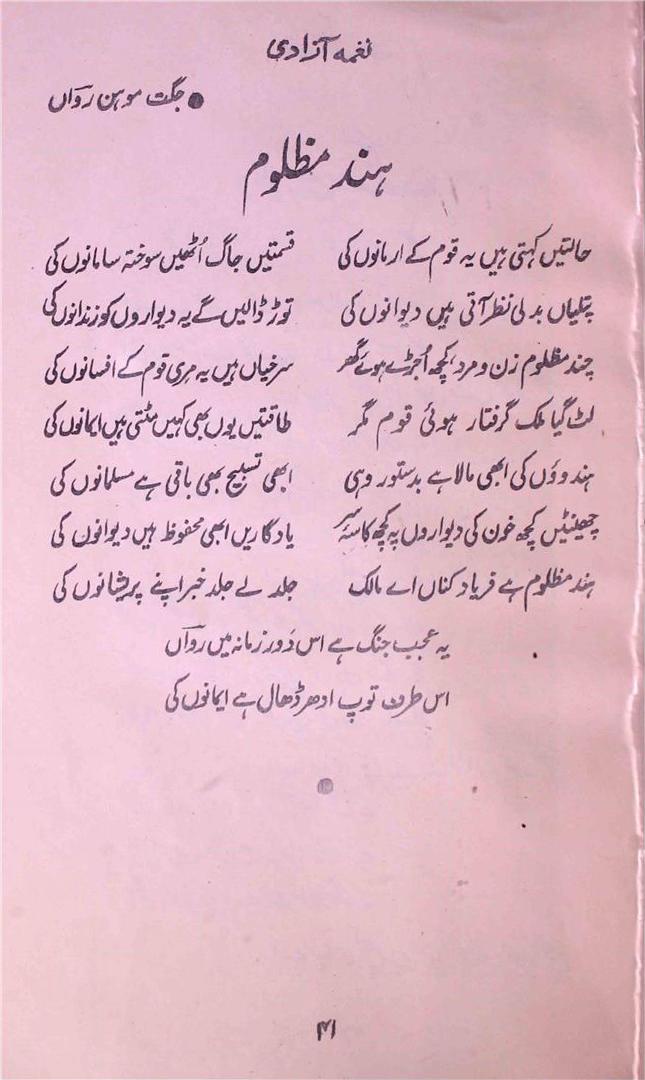 نغمہ آزادی
● جگت موہن رواںؔ
ہند مظلوم
حالتیں کہتی ہیں یہ قوم کے ارمانوں کی قسمتیں جاگ اُٹھیں سوختہ سامانوں کی
پتلیاں بدلی نظر آتی ہیں دیوانوں کی توڑ ڈالیں گے یہ دیواروں کو زندانوں کی
چند مظلوم زن و مرد، کچھ اُجڑے ہوئے گھر سرخیاں ہیں یہ مری قوم کے افسانوں کی
لٹ گیا ملک گرفتار ہوئی قوم مگر طاقتیں یوں بھی کہیں مٹتی ہیں ایمانوں کی
ہندوؤں کی ابھی مالا ہے بدستور وہی ابھی تسبیح بھی باقی ہے مسلمانوں کی
چھینٹیں کچھ خون کی دیواروں پہ کچھ کاسۂ سر یادگاریں ابھی محفوظ ہیں دیوانوں کی
ہند مظلوم ہے فریاد کناں اے مالک جلد لے جلد خبر اپنے پریشانوں کی
یہ عجب جنگ ہے اس دَور زمانہ میں رواںؔ
اس طرف توپ ادھر ڈھال ہے ایمانوں کی
۴۱